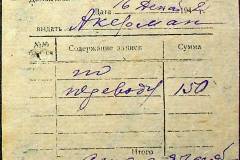 Дата 16 декаб 194
выдать Акерман
№№ Содержание записи Сумма
по
переводу 150
Итого